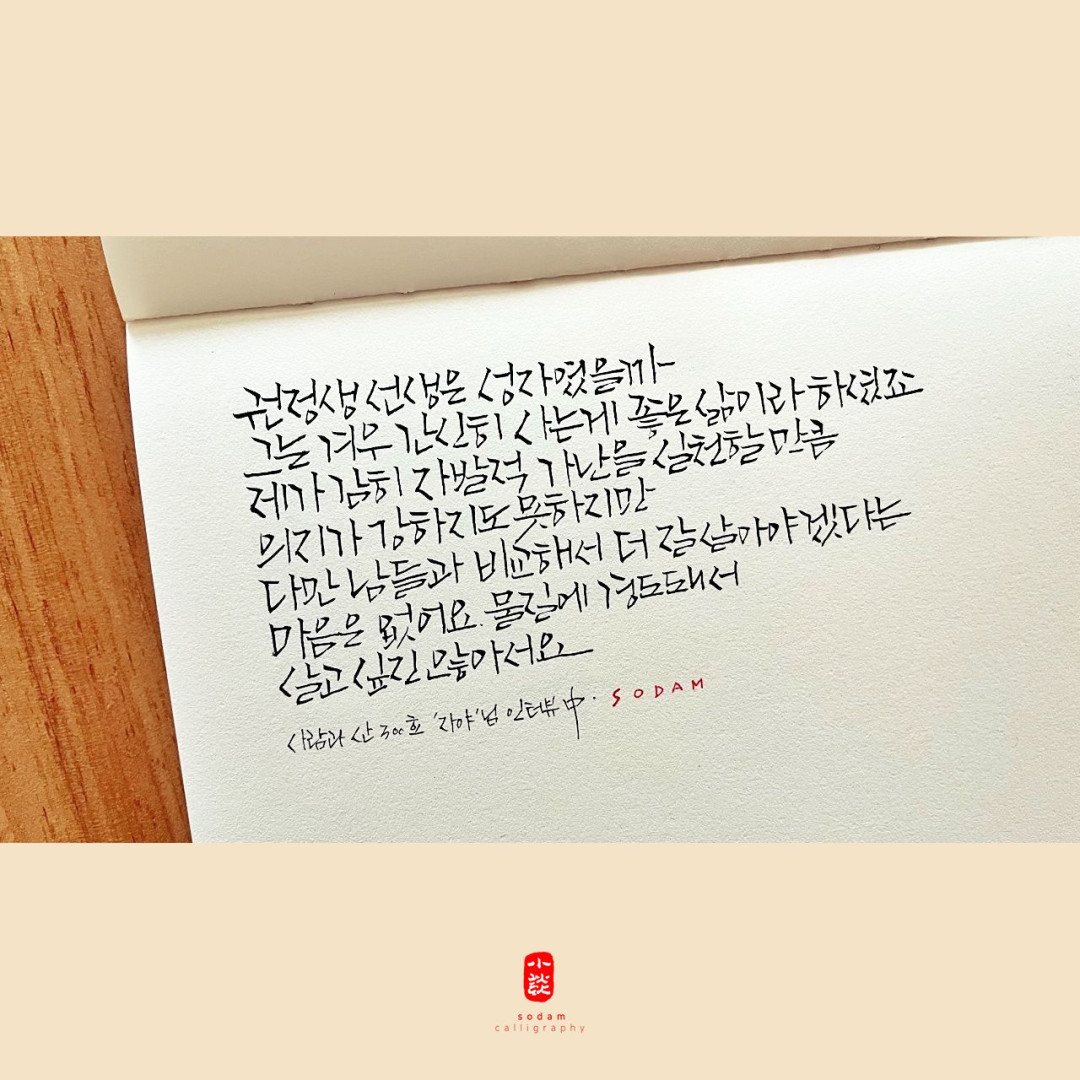 권정생 선생은 성자였을까
그는 겨우 간신히 사는게 좋은 삶이라 하셨죠
제가 감히 자발적 가난을 실천할 만큼
의지가 강하지도 못하지만
다만 남들과 비교해서 더 잘 살아야겠다는
마음은 없어요. 물질에 경도돼서
살고 싶진 않아서요
사람과 산 300호 '자야'님 인터뷰 中. SODAM
小談
sodam
calligraphy